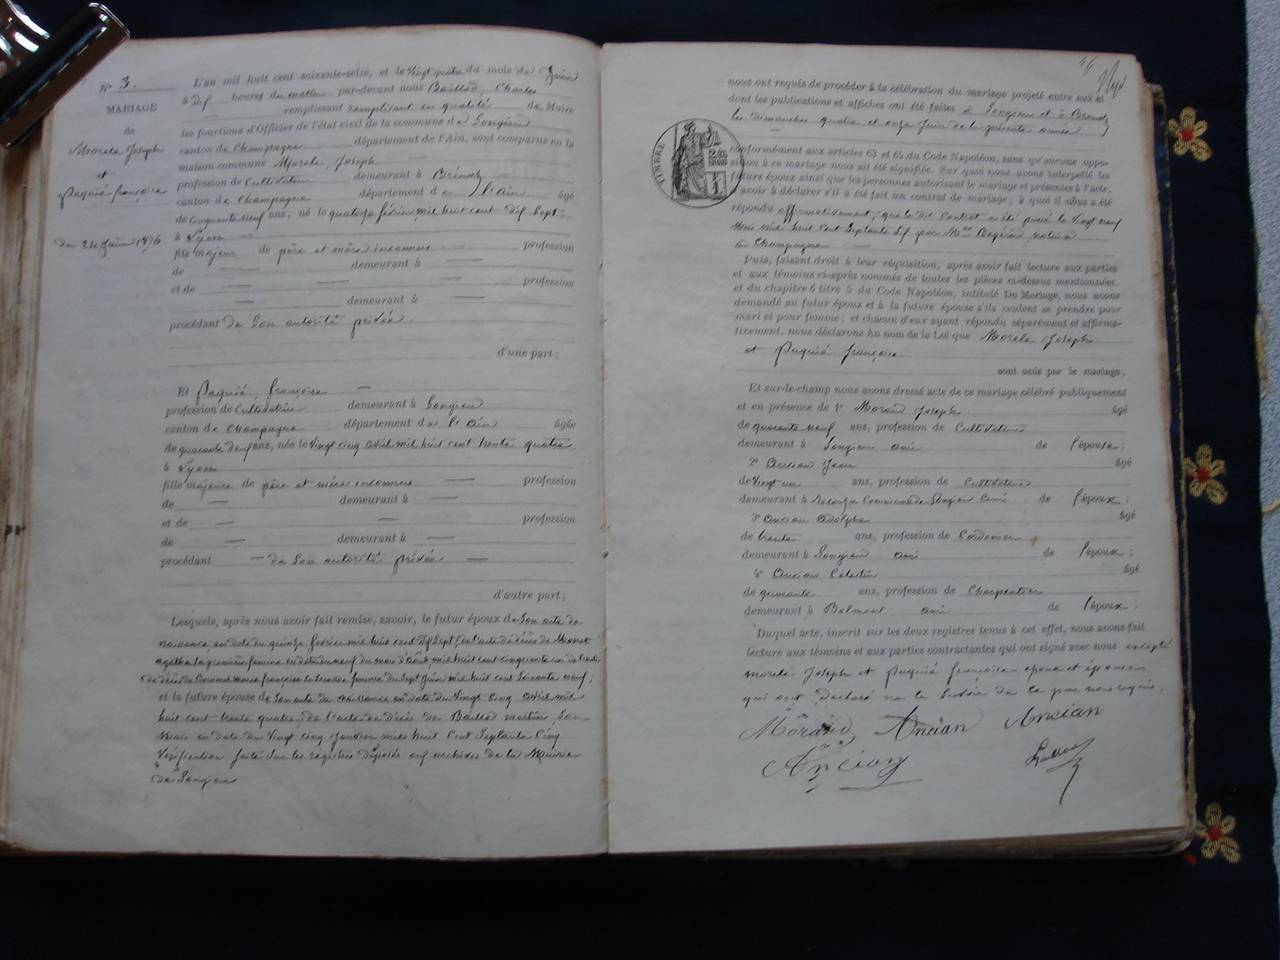 N° 3.
MARIAGE
de
Morele Joseph
et
Paquié françoise
du 24 Juin 1876
L'an mil huit cent soixante-seize, et le Vingt quatre du mois de Juin
à dix heures du matin par-devant nous Baillod, Charles
remplissant remplissant en qualité de Maire
les fonctions d'Officier de l'état civil de la commune de Songieu
canton de Champagne département de l'Ain, sont comparus en la
maison commune Morele, Joseph
profession de Cultivateur demeurant à Brénaz
canton de Champagne département de l'ain âgé
de Cinquante neuf ans, né le quatorze février mil huit cent dix sept
à Lyon
fils majeur de père et mère inconnus profession
de demeurant à
et de profession
demeurant à
procédant de son autorité privée
d'une part;
Et Paquié, françoise
profession de Cultivatrice demeurant à Songieu
canton de Champagne département de l'ain âgée
de quarante deux ans, née le Vingt cinq avril mil huit cent trente quatre
à Lyon
fille majeure de père et mère inconnus profession
de demeurant à
et de profession
de demeurant à
procédant de son autorité privée
d'autre part;
Lesquels, après nous avoir fait remise, savoir, le futur époux de son acte de
naissance en date du quinze février mil huit cent dix sept, de l'acte de décès de
agathe sa première femme en date du neuf du mois d'août mil huit cent cinquante un de l'acte
de décès de françoise sa seconde femme du sept Juin mil huit cent soixante neuf;
et la future épouse de son acte de naissance en date du Vingt cinq avril mil
huit cent trente quatre, de l'acte de décès de Baillod son
mari en date du Vingt cinq Janvier mil huit cent septante cinq
Vérification faite sur les registres déposés aux archives de la Mairie
de Songieu
nous ont requis de procéder à la célébration du mariage projeté entre eux et
dont les publications et affiches ont été faites à Songieu et à Brenaz
les dimanches quatre et onze Juin de la présente année
TIMBRE
conformément aux articles 63 et 64 du Code Napoléon, sans qu'aucune oppo-
sition à ce mariage nous ait été signifiée. Sur quoi nous avons interpellé les
future époux ainsi que les personnes autorisant le mariage et présentes à l'acte,
d'avoir à déclarer s'il a été fait un contrat de mariage; à quoi il nous a été
répondu affirmativement, que le dit contrat a été passé le Vingt neuf
Mai mil huit cent septante six par Me notaire
à Champagne
Puis, faisant droit à leur réquisition, après avoir fait lecture aux parties
et aux témoins ci-après nommés de toutes les pièces ci-dessus mentionnées,
et du chapitre 6 titre 5 du Code Napoléon, intitulé Du Mariage, nous avons
demandé au futur époux et à la future épouse s'ils veulent se prendre pour
mari et pour femme; et chacun d'eux ayant répondu séparément et affirma-
tivement, nous déclarons au nom de la Loi que Morele Joseph
et Paquié françoise
sont unis par le mariage.
Et sur-le-champ nous avons dressé acte de ce mariage célébré publiquement
et en présence de 1° Morand Joseph âgé
de quarante neuf ans, profession de Cultivateur
demeurant à Songieu ami de l'épouse;
2° Ancian Jean âgé
de Vingt un ans, profession de Cultivateur
demeurant à Commune de Songieu ami de l'époux;
3° Ancian Adolphe âgé
de trente ans, profession de Cordonnier
demeurant à Songieu ami de l'époux;
4° Ancian Celestin âgé
de quarante ans, profession de Charpentier
demeurant à Belmont ami de l'époux.
Duquel acte, inscrit sur les deux registres tenus à cet effet, nous avons fait
lecture aux témoins et aux parties contractantes qui ont signé avec nous excepté
morele Joseph et Paquié françoise époux et épouse
qui ont déclaré ne le savoir de ce par nous requis.
Morand Ancian Ancian
Ancian